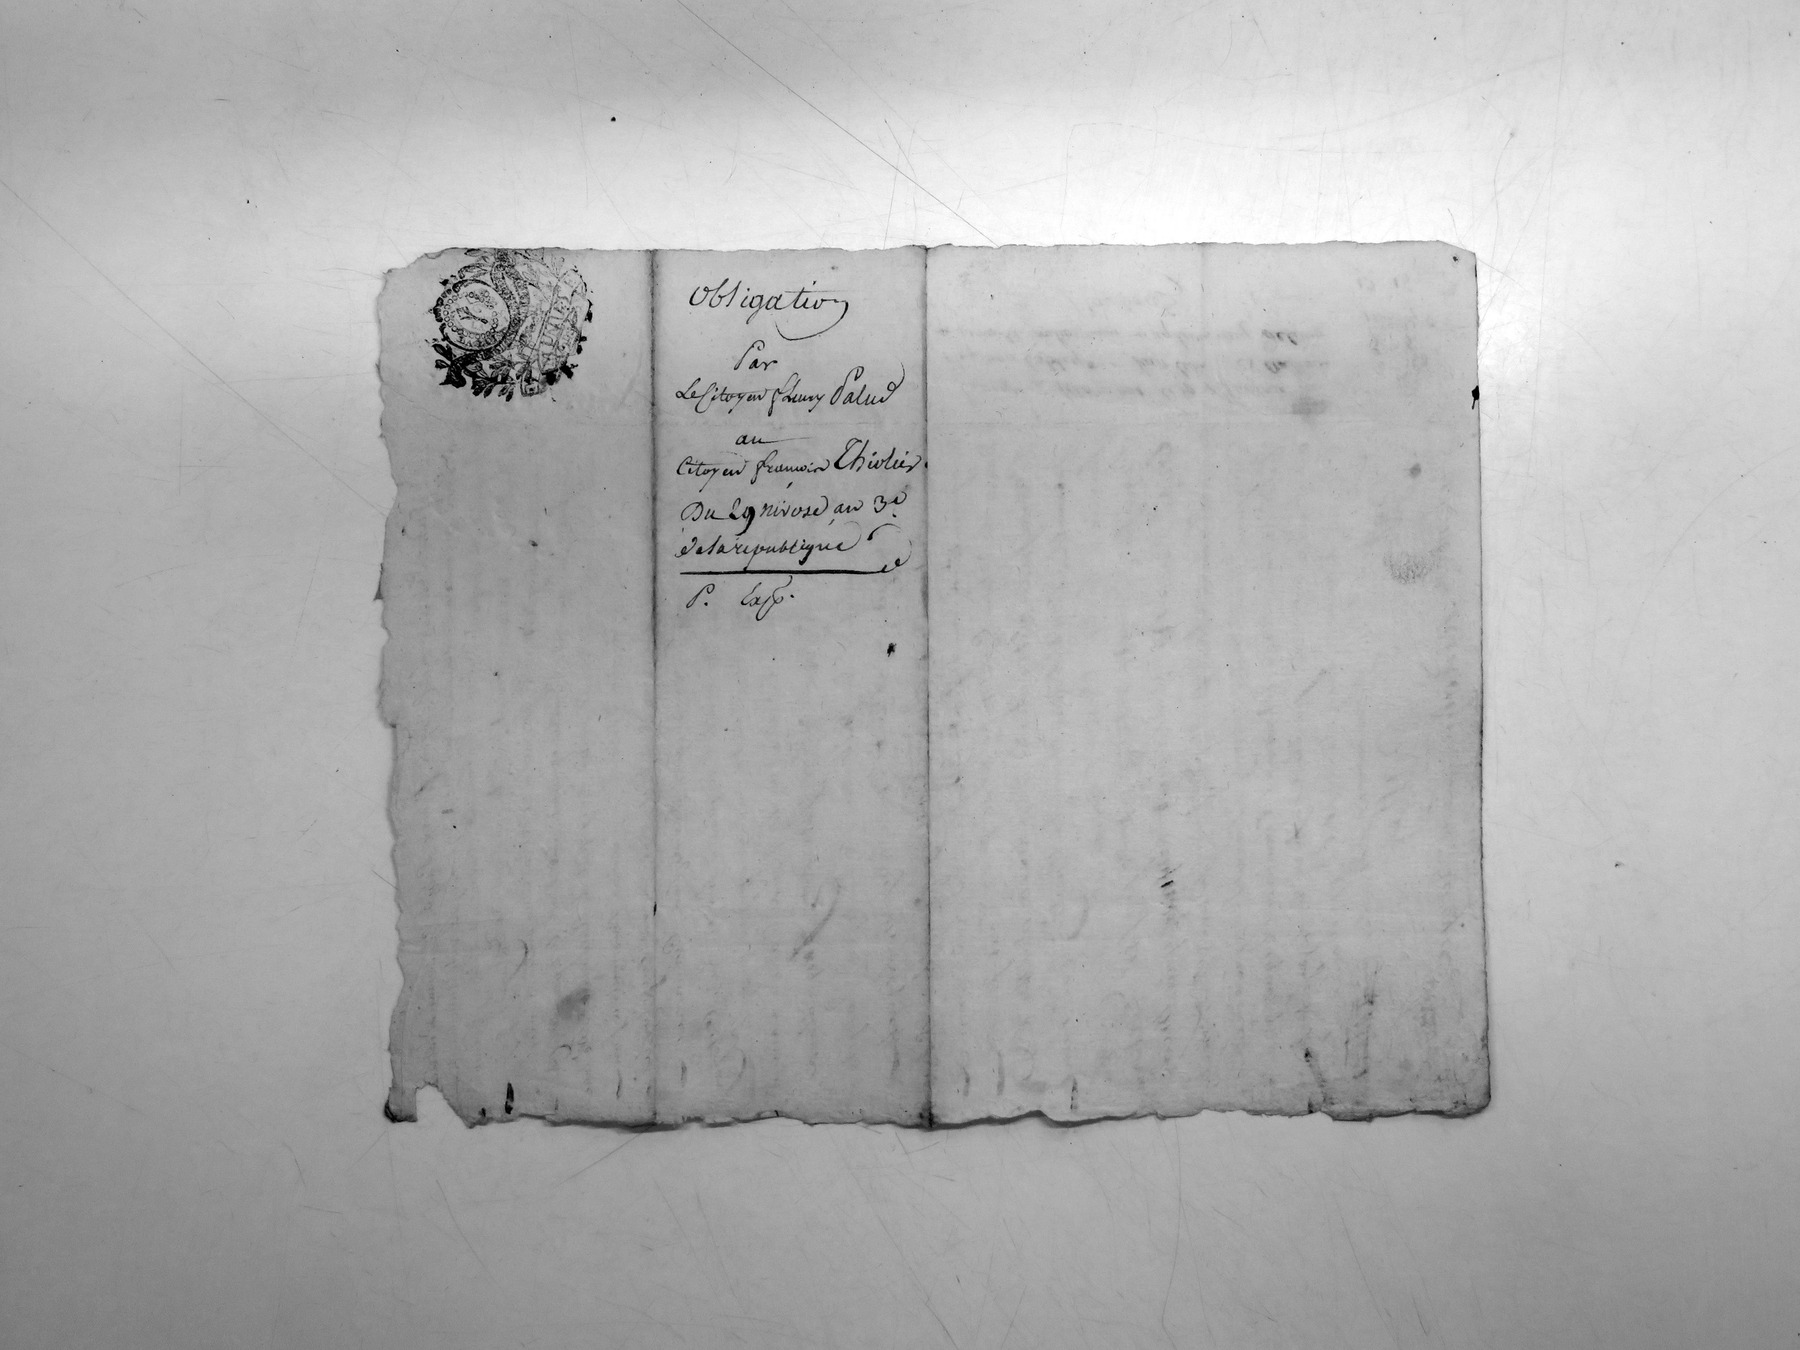 Obligation
Par
Le Citoyen fleury Palud
au
Citoyen francois Thiolier
Du 29 nivose an 3e
de la republique
P. Exp.